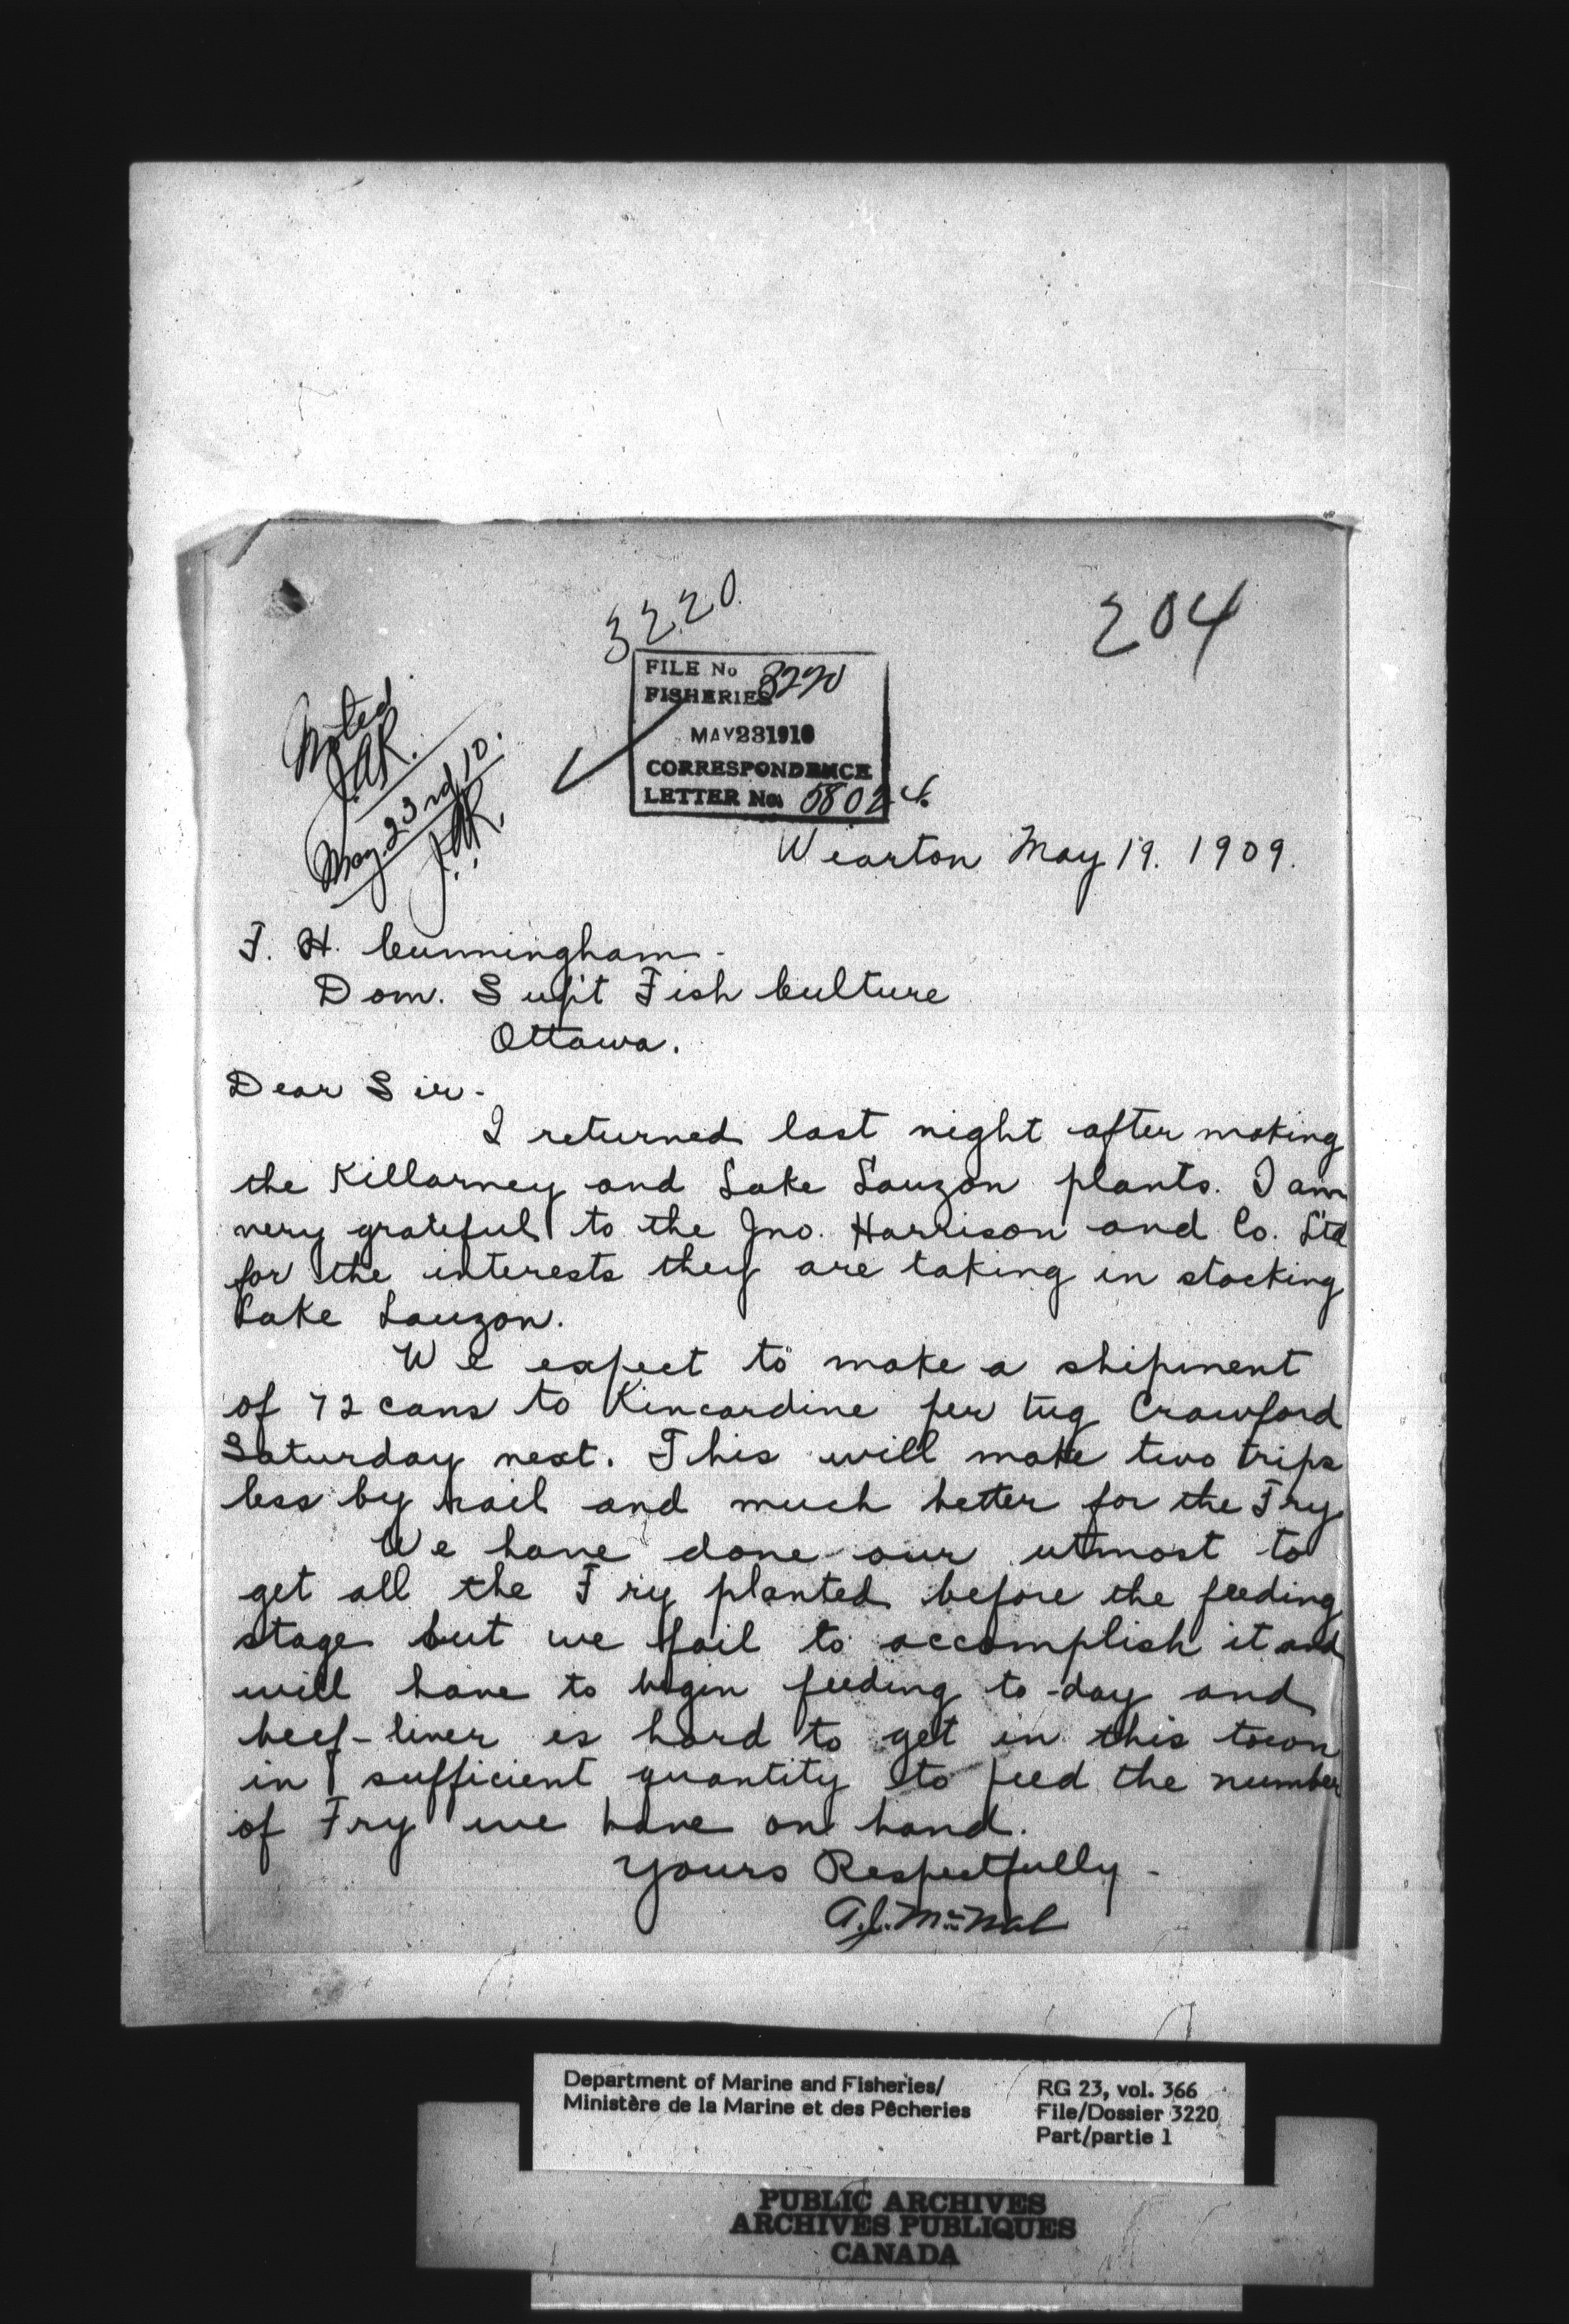 3220
204
FILE No 3220
FISHERIES
MAY 23 1910
CORRESPONDENCE
LETTER No. 5802
Noted
J.A.R.
May 23rd 10.
J.A.R.
Wiarton May 19. 1909.
F. H. Cunningham -
Dom. Sup't Fish Culture
Ottawa.
Dear Sir -
I returned last night after making
the Killarney and Lake Lauzon plants. I am
very grateful to the Jno. Harrison and Co. Ltd
for the interests they are taking in stocking
Lake Lauzon.
We expect to make a shipment
of 72 cans to Kincardine per tug Crawford
Saturday next. This will make two trips
less by rail and much better for the Fry
We have done our utmost to
get all the Fry planted before the feeding
stage but we fail to accomplish it and
will have to begin feeding to-day and
beef-liver is hard to get in this town
in sufficient quantity to feed the number
of Fry we have on hand.
Yours Respectfully -
Department of Marine and Fisheries/
Ministère de la Marine et des Pêcheries
RG 23, vol. 366
File/Dossier 3220
Part/partie 1
PUBLIC ARCHIVES
ARCHIVES PUBLIQUES
CANADA